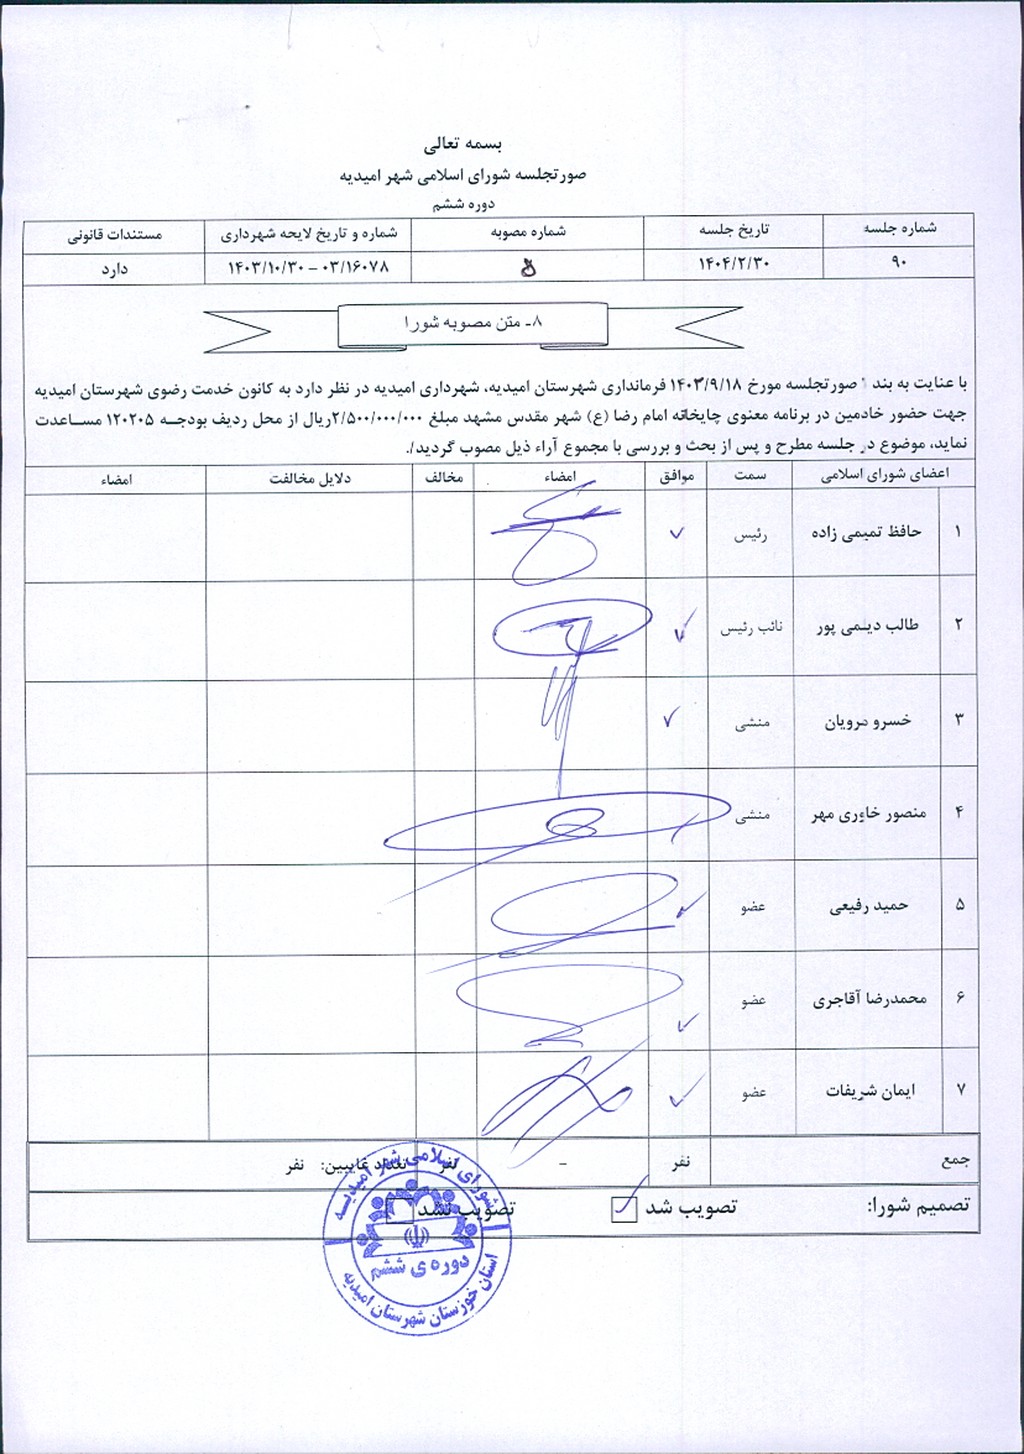 بسمه تعالی
صورتجلسه شورای اسلامی شهر امیدیه
دوره ششم
شماره جلسه تاریخ جلسه شماره مصوبه شماره و تاریخ لایحه شهرداری مستندات قانونی
۹۰ ۱۴۰۴/۲/۳۰ ۸ ۰۳/۱۶۰۷۸ – ۱۴۰۳/۱۰/۳۰ دارد
۸- متن مصوبه شورا
با عنایت به بند صورتجلسه مورخ ۱۴۰۳/۹/۱۸ فرمانداری شهرستان امیدیه، شهرداری امیدیه در نظر دارد به کانون خدمت رضوی شهرستان امیدیه
جهت حضور خادمین در برنامه معنوی چایخانه امام رضا (ع) شهر مقدس مشهد مبلغ ۲/۵۰۰/۰۰۰/۰۰۰ریال از محل ردیف بودجه ۱۲۰۲۰۵ مساعدت
نماید، موضوع در جلسه مطرح و پس از بحث و بررسی با مجموع آراء ذیل مصوب گردید/.
اعضای شورای اسلامی سمت موافق امضاء مخالف دلایل مخالفت امضاء
۱ حافظ تمیمی زاده رئیس
۲ طالب دیلمی پور نائب رئیس
۳ خسرو مرویان منشی
۴ منصور خاوری مهر منشی
۵ حمید رفیعی عضو
۶ محمدرضا آقاجری عضو
۷ ایمان شریفات عضو
جمع نفر - نفر تعداد غایبین: نفر
تصمیم شورا: تصویب شد تصویب نشد
شورای اسلامی شهر امیدیه
دوره ی ششم
استان خوزستان شهرستان امیدیه